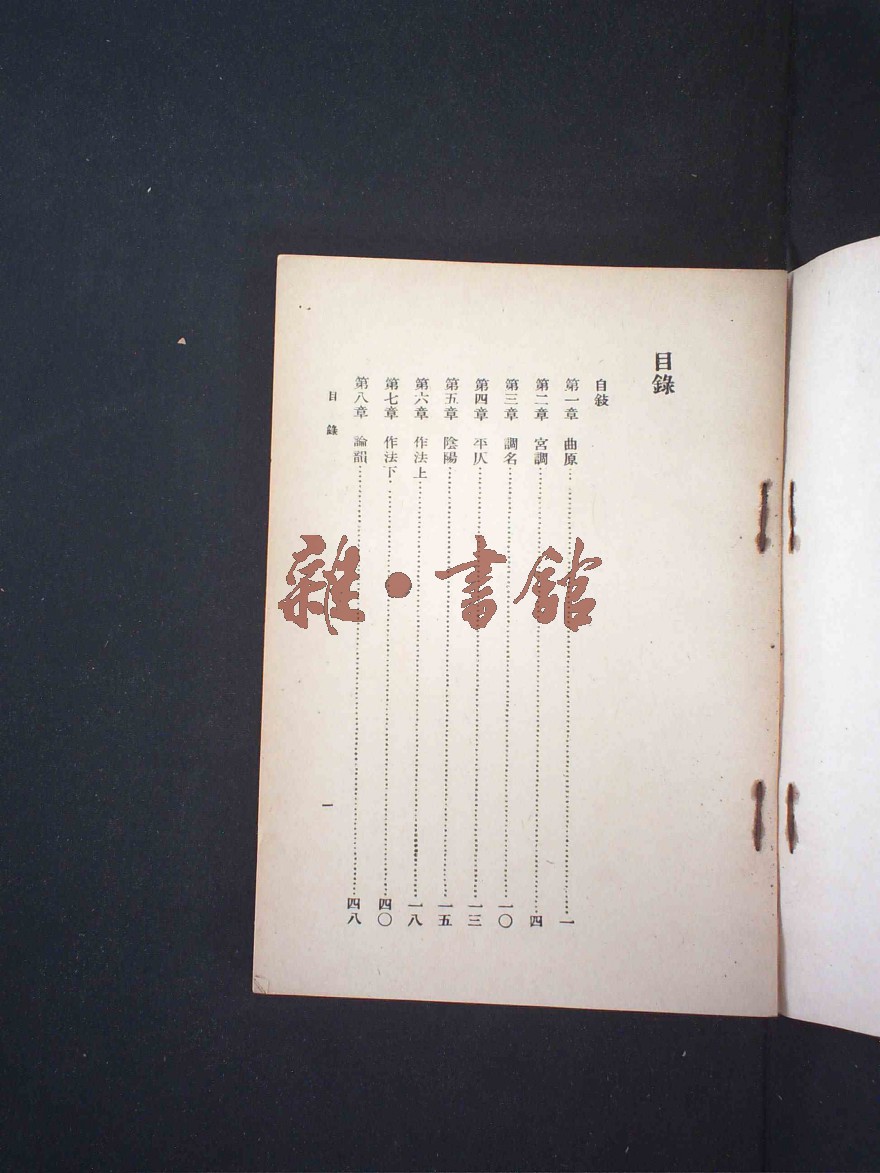 目錄
自敍
第一章 曲原……一
第二章 宮調……四
第三章 調名……一〇
第四章 平仄……一三
第五章 陰陽……一五
第六章 作法上……一八
第七章 作法下……四〇
第八章 論韻……四八
目錄 一
雜·書館